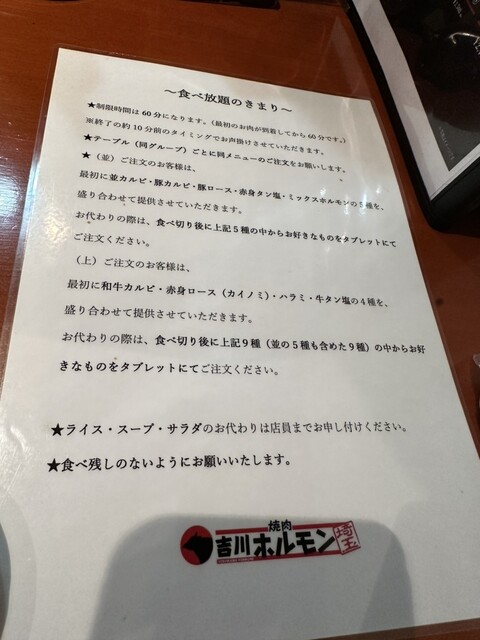 ～食べ放題のきまり～
★制限時間は60分になります。(最初のお肉が到着してから60分です。)
※終了の約10分前のタイミングでお声掛けさせていただきます。
★テーブル（同グループ）ごとに同メニューのご注文をお願いします。
★（並）ご注文のお客様は、
最初に並カルビ・豚カルビ・豚ロース・赤身タン塩・ミックスホルモンの5種を、
盛り合わせて提供させていただきます。
お代わりの際は、食べ切り後に上記5種の中からお好きなものをタブレットにて
ご注文ください。
（上）ご注文のお客様は、
最初に和牛カルビ・赤身ロース（カイノミ）・ハラミ・牛タン塩の4種を、
盛り合わせて提供させていただきます。
お代わりの際は、食べ切り後に上記9種（並の5種も含めた9種）の中からお好
きなものをタブレットにてご注文ください。
★ライス・スープ・サラダのお代わりは店員までお申し付けください。
★食べ残しのないようにお願いいたします。
焼肉
吉川ホルモン
埼玉